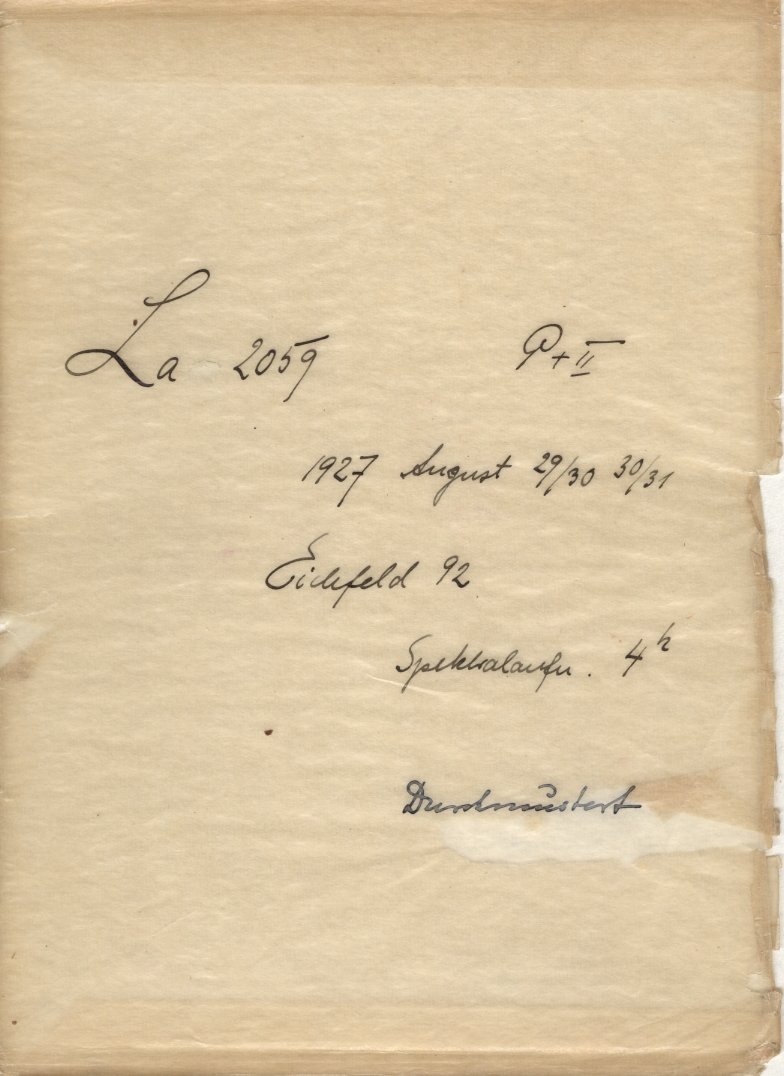 La 2059 P + II
1927 August 29/30 30/31
Eichfeld 92
Spektralaufn. 4h
Durchmustert